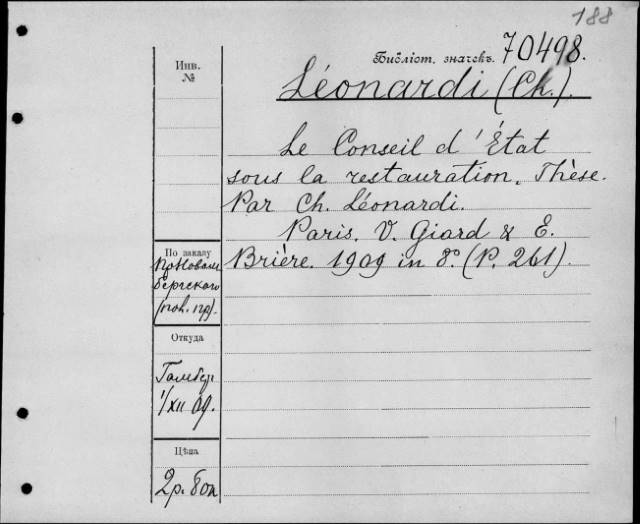 188
Библіот. значекъ. 70498.
Инв.
№
Léonardi (Ch.).
Le Conseil d'État
sous la restauration. Thèse.
Par Ch. Léonardi.
Paris. V. Giard & E.
Brière. 1909 in 8°. (P. 261).
По заказу
бергскаго
Откуда
1/XII 09.
Цѣна
2р. 80к